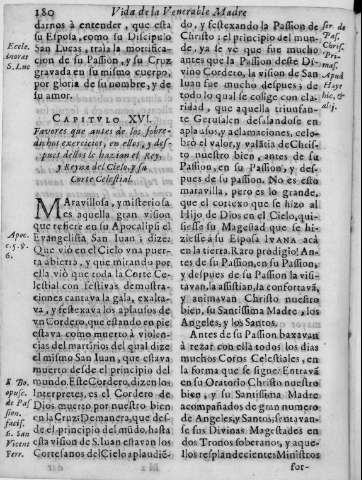 180 Vida de la Venerable Madre
darnos à entender, que esta
su Esposa, como su Discipulo
San Lucas, traìa la mortificacion
de su Passion, y su Cruz
gravada en su mismo cuerpo,
por gloria de su nombre, y de
su amor.
CAPITVLO XVI.
Favores que antes de los sobredichos
exercicios, en ellos, y despues
dellos le hazian el Rey,
y Reyna del Cielo, y su
Corte Celestial.
MAravillosa, y misteriosa
es aquella gran vision
que refiere en su Apocalipsi el
Evangelista San Iuan; dize:
Que viò en el Cielo vna puerta
abierta, y que mirando por
ella viò que toda la Corte Celestial
con festivas demustraciones
cantava la gala, exaltava,
y festexava los aplausos de
vn Cordero, que estando en pie
estava como muerto à violencias
del martirio del qual dize
el mismo San Iuan, que estava
muerto desde el principio del
mundo. Este Cordero, dizen los
Interpretes, es el Cordero de
Dios muerto por nuestro bien
en la Cruz: Demanera, que desde
el principio del mũdo, hasta
esta vision de S. Iuan estavan los
Cortesanos del Cielo aplaudiẽdo,
y festexando la Passion de
Christo: el principio del mundo,
ya se vè que fue mucho
antes que la Passion deste Divino
Cordero, la vision de San
Iuan fue mucho despues; de
todo lo qual se colige con claridad,
que aquella triunfante
Gerusalen desalandose en
aplausos, y aclamaciones, celebrò
el valor, y valẽtia de Christo
nuestro bien, antes de su
Passion, en su Passion, y despues
de su passion. No es esto
maravilla; pero es lo grande,
que el cortexo que se hizo al
Hijo de Dios en el Cielo, quisiesse
su Magestad que se hiziesse
à su Esposa IVANA acà
en la tierra. Raro prodigio! Antes
de su Passion, en su Passion,
y despues de su Passion la visitavan,
la assistian, la confortavã,
y animavan Christo nuestro
bien, su Santissima Madre, los
Angeles, y los Santos.
Antes de su Passion baxavan
à rezar con ella todos los dias
muchos Coros Celestiales, en
la forma que se sigue: Entravã
en su Oratorio Christo nuestro
bien, y su Santissima Madre
acompañados de gran numero
de Angeles, y Santos; sentavanse
sus Divinas Magestades en
dos Tronos soberanos, y aquellos
resplandecientes Ministros
for-
Apoc.
c. 5. &
6.
S. Luc
S. Vincent
Ferr.